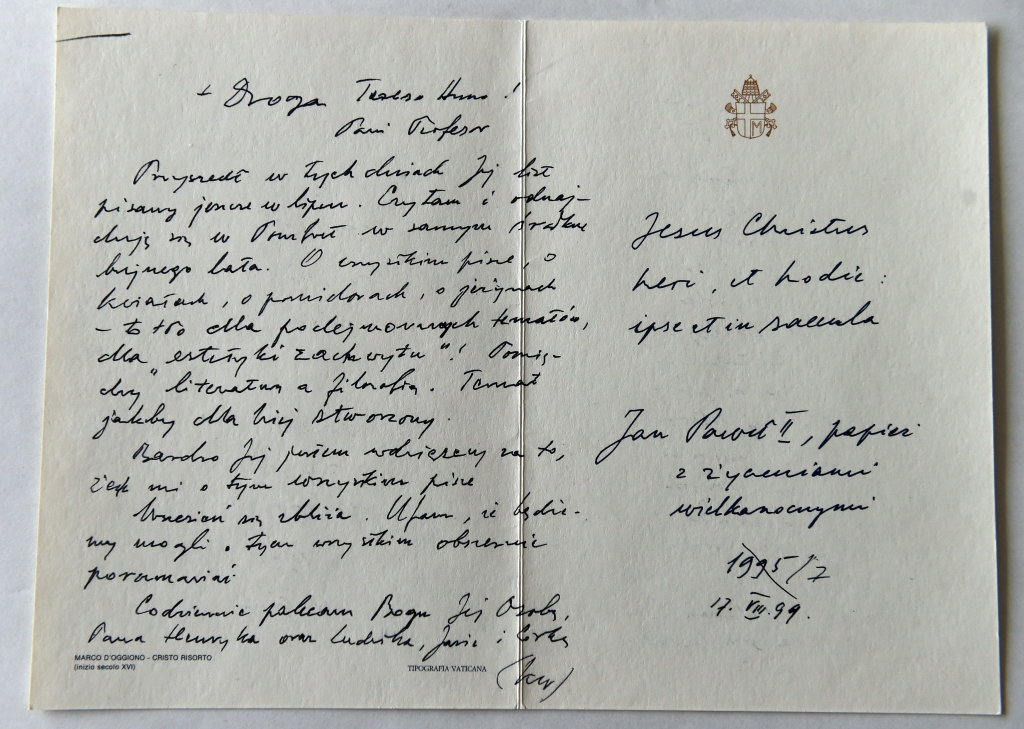 + Droga Tereso Anno!
Pani Profesor
Przyszedł w tych dniach Jej list
pisany jeszcze w lipcu. Czytam i odnaj-
duję się w w samym środku
bujnego lata. O wszystkim pisze, o
kwiatach, o pomidorach, o jeżynach
– to tło dla podejmowanych tematów,
dla „estetyki zachwytu"! Pomię-
dzy literaturą a filozofią. Temat
jakby dla Niej stworzony.
Bardzo Jej jestem wdzięczny za to,
że mi o tym wszystkim pisze
Wrzesień się zbliża. Ufam, że będzie-
my mogli o tym wszystkim obszernie
porozmawiać
Codziennie polecam Bogu Jej Osobę,
Pana Henryka oraz Ludwika, Jasia i
MARCO D'OGGIONO - CRISTO RISORTO
(inizio secolo XVI)
TIPOGRAFIA VATICANA
M
Jesus Christus
heri, et hodie:
ipse et in saecula
Jan Paweł II, papież
z życzeniami
wielkanocnymi
1995/7
17. VIII. 99.